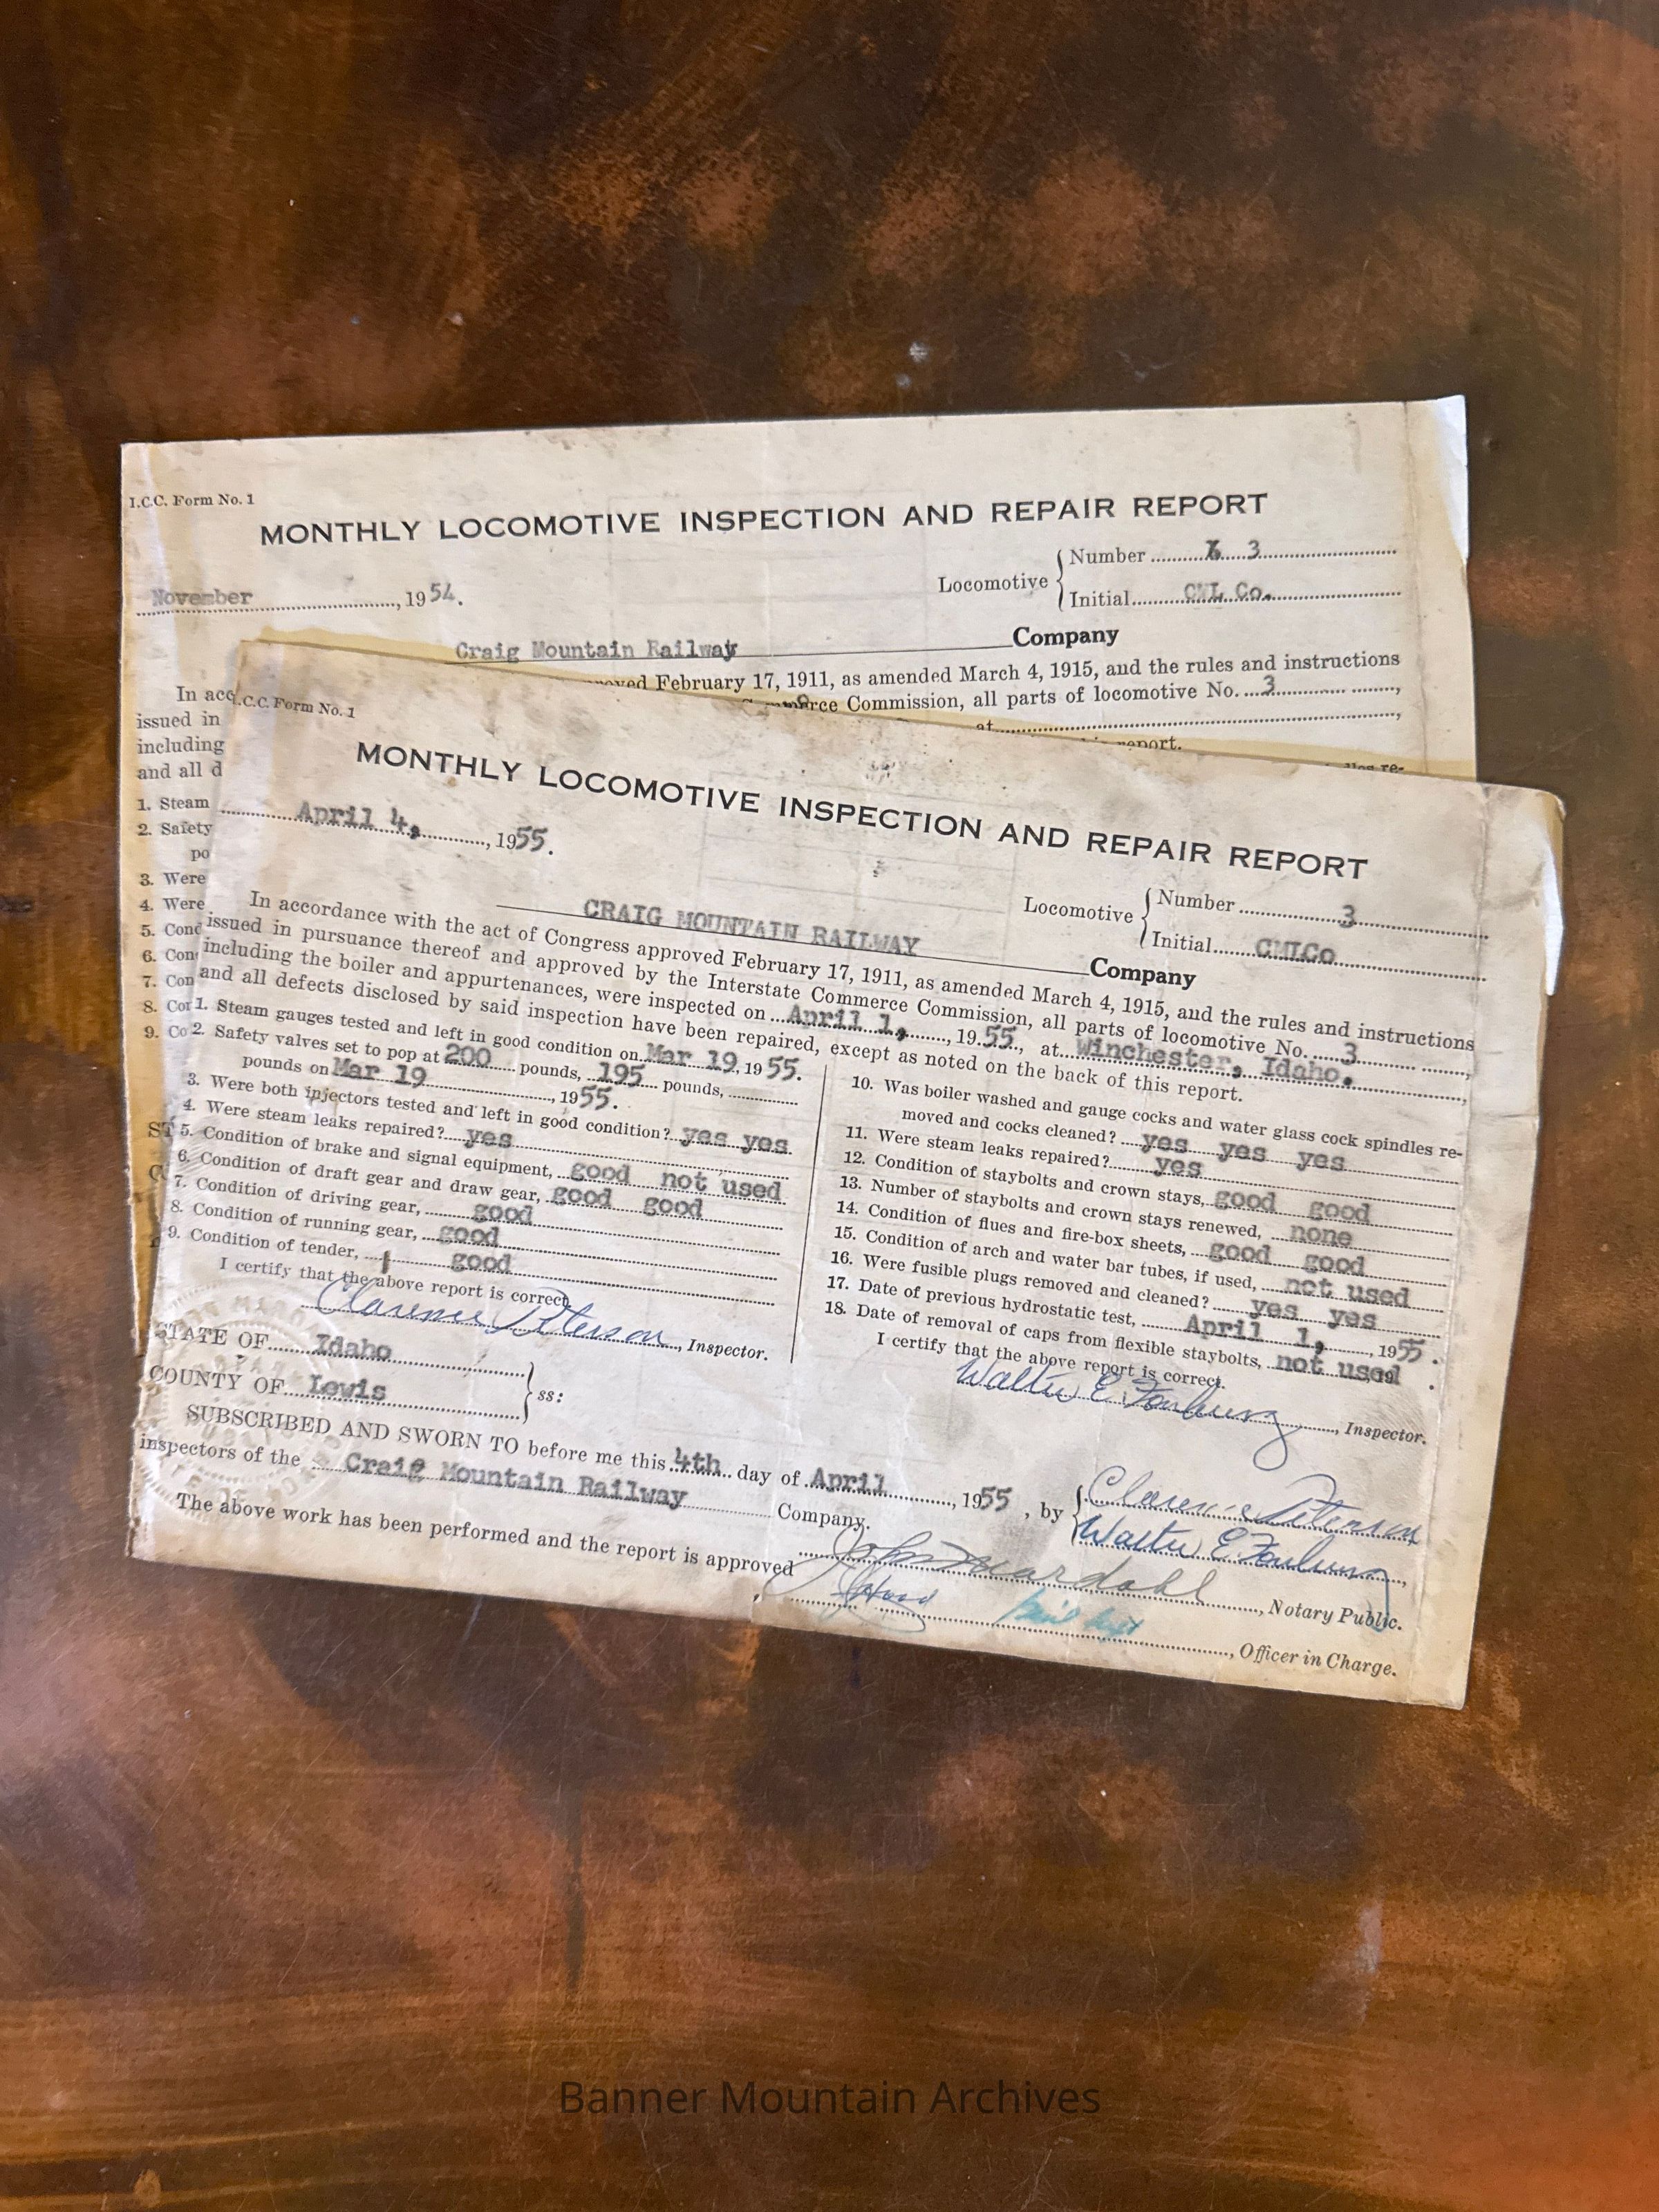 I.C.C. Form No. 1
MONTHLY LOCOMOTIVE INSPECTION AND REPAIR REPORT
Locomotive
Number 3
Initial CML Co.
November, 1954.
Craig Mountain Railway Company
February 17, 1911, as amended March 4, 1915, and the rules and instructions
Commission, all parts of locomotive No. 3,
at
report.
In acc
issued in
including
and all d
1. Steam
2. Safety
po
3. Were
4. Were
5. Cond
6. Con
7. Con
8. Cor
9. Co
I.C.C. Form No. 1
MONTHLY LOCOMOTIVE INSPECTION AND REPAIR REPORT
April 4, 1955.
Locomotive
Number 3
Initial CMLCo
CRAIG MOUNTAIN RAILWAY Company
In accordance with the act of Congress approved February 17, 1911, as amended March 4, 1915, and the rules and instructions
issued in pursuance thereof and approved by the Interstate Commerce Commission, all parts of locomotive No. 3,
including the boiler and appurtenances, were inspected on April 1, 1955, at Winchester, Idaho.,
and all defects disclosed by said inspection have been repaired, except as noted on the back of this report.
1. Steam gauges tested and left in good condition on Mar 19, 1955.
2. Safety valves set to pop at 200 pounds, 195 pounds,
pounds on Mar 19, 1955.
3. Were both injectors tested and left in good condition? yes yes
4. Were steam leaks repaired? yes
5. Condition of brake and signal equipment, good not used
6. Condition of draft gear and draw gear, good good
7. Condition of driving gear, good
8. Condition of running gear, good
9. Condition of tender, good
I certify that the above report is correct.
Clarence Peterson, Inspector.
10. Was boiler washed and gauge cocks and water glass cock spindles re-
moved and cocks cleaned? yes yes yes
11. Were steam leaks repaired? yes
12. Condition of staybolts and crown stays, good good
13. Number of staybolts and crown stays renewed, none
14. Condition of flues and fire-box sheets, good good
15. Condition of arch and water bar tubes, if used, not used
16. Were fusible plugs removed and cleaned? yes yes
17. Date of previous hydrostatic test, April 1, 1955.
18. Date of removal of caps from flexible staybolts, not used 19 .
I certify that the above report is correct.
Walter E, Inspector.
STATE OF Idaho
COUNTY OF Lewis
ss:
SUBSCRIBED AND SWORN TO before me this 4th day of April, 1955, by
Clarence Peterson
Walter E
inspectors of the Craig Mountain Railway Company.
John, Notary Public.
The above work has been performed and the report is approved
, Officer in Charge.
Banner Mountain Archives